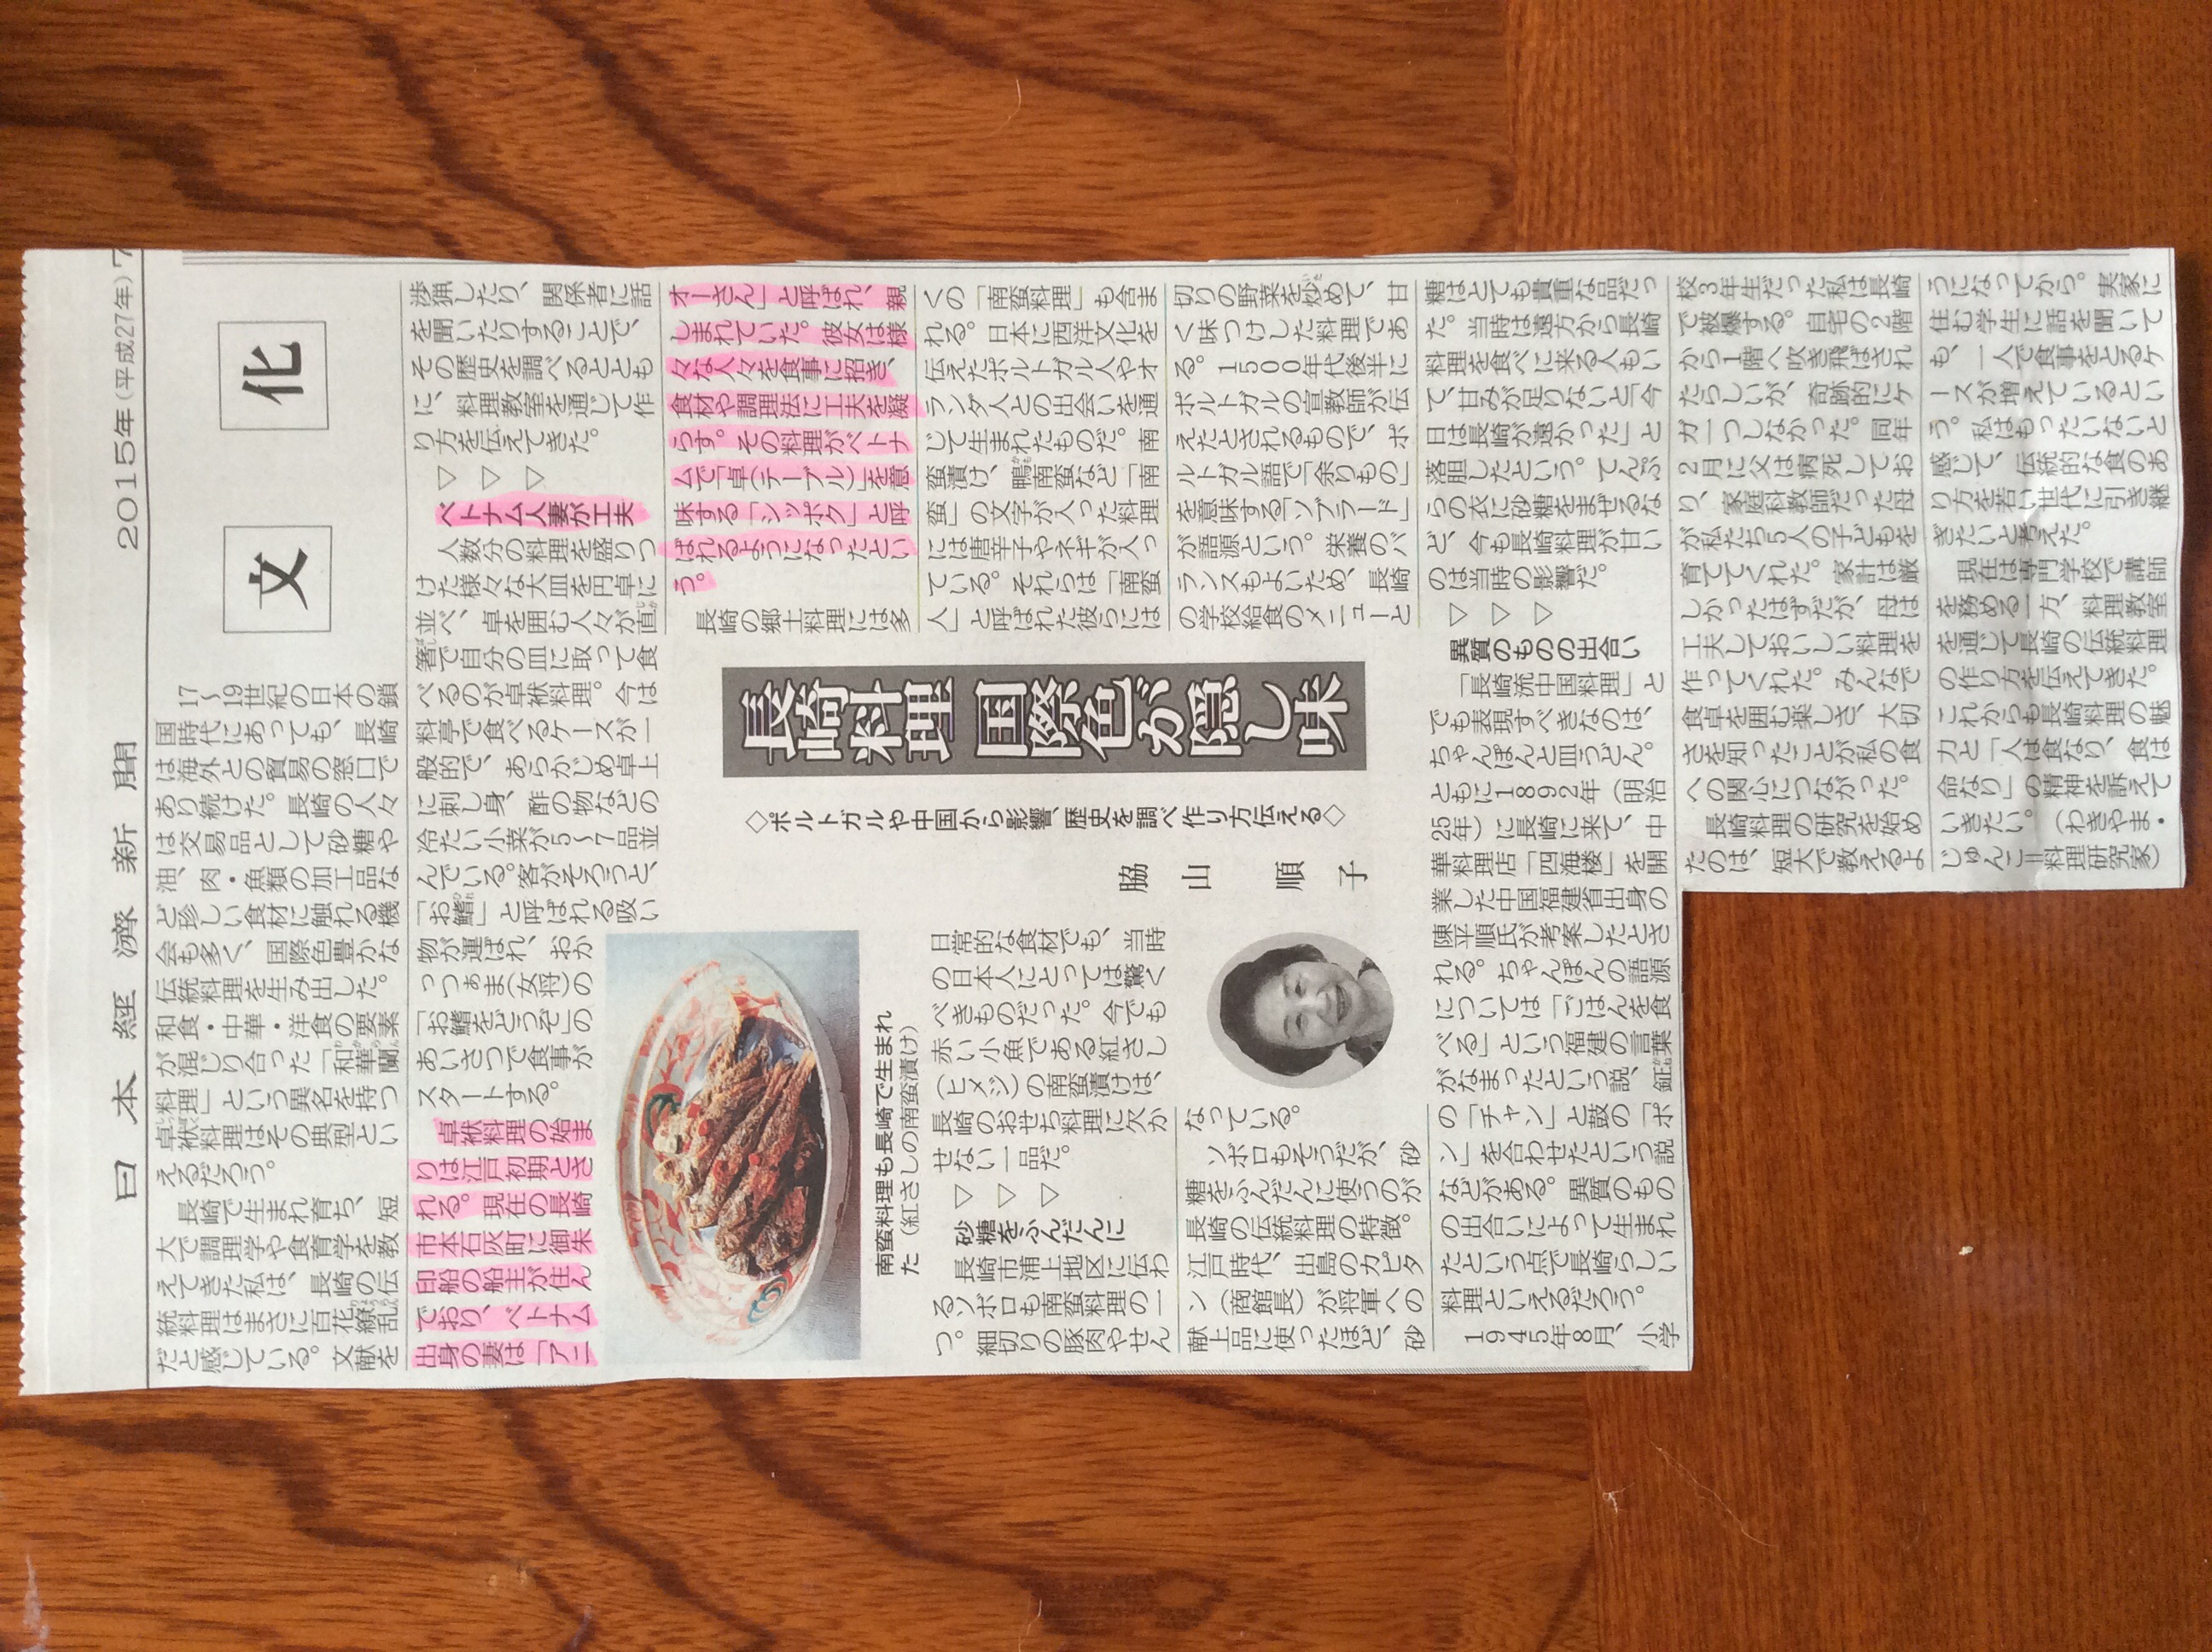 日本經濟新聞 2015年(平成27年)7
文化
17〜19世紀の日本の鎖
国時代にあっても、長崎
は海外との貿易の窓口で
あり続けた。長崎の人々
は交易品として砂糖や
油、肉・魚類の加工品な
ど珍しい食材に触れる機
会も多く、国際色豊かな
伝統料理を生み出した。
和食・中華・洋食の要素
が混じり合った「和華蘭
料理」という異名を持つ
卓袱料理はその典型とい
えるだろう。
長崎で生まれ育ち、短
大で調理学や食育学を教
えてきた私は、長崎の伝
統料理はまさに百花繚乱
だと感じている。文献を
渉猟したり、関係者に話
を聞いたりすることで、
その歴史を調べるととも
に、料理教室を通じて作
り方を伝えてきた。
▽ ▽ ▽
ベトナム人妻が工夫
人数分の料理を盛りつ
けた様々な大皿を円卓に
並べ、卓を囲む人々が直
箸で自分の皿に取って食
べるのが卓袱料理。今は
料亭で食べるケースが一
般的で、あらかじめ卓上
に刺し身、酢の物などの
冷たい小菜が5〜7品並
んでいる。客がそろうと、
「お鰭」と呼ばれる吸い
物が運ばれ、おか
っつぁま(女将)の
「お鰭をどうぞ」の
あいさつで食事が
スタートする。
卓袱料理の始ま
りは江戸初期とさ
れる。現在の長崎
市本石灰町に御朱
印船の船主が住ん
でおり、ベトナム
出身の妻は「アニ
オーさん」と呼ばれ、親
しまれていた。彼女は様
々な人々を食事に招き、
食材や調理法に工夫を凝
らす。その料理がベトナ
ムで「卓(テーブル)」を意
味する「シッポク」と呼
ばれるようになったとい
う。
長崎の郷土料理には多
くの「南蛮料理」も含ま
れる。日本に西洋文化を
伝えたポルトガル人やオ
ランダ人との出会いを通
じて生まれたものだ。南
蛮漬け、鴨南蛮など「南
蛮」の文字が入った料理
には唐辛子やネギが入っ
ている。それらは「南蛮
人」と呼ばれた彼らには
長崎料理 国際色が隠し味
◇ポルトガルや中国から影響、歴史を調べ作り方伝える◇
脇山 順子
南蛮料理も長崎で生まれ
た(紅さしの南蛮漬け)
日常的な食材でも、当時
の日本人にとっては驚く
べきものだった。今でも
赤い小魚である紅さし
(ヒメジ)の南蛮漬けは、
長崎のおせち料理に欠か
せない一品だ。
▽ ▽ ▽
砂糖をふんだんに
長崎市浦上地区に伝わ
るソボロも南蛮料理の一
つ。細切りの豚肉やせん
切りの野菜を炒めて、甘
く味つけした料理であ
る。1500年代後半に
ポルトガルの宣教師が伝
えたとされるもので、ポ
ルトガル語で「余りもの」
を意味する「ソブラード」
が語源という。栄養のバ
ランスもよいため、長崎
の学校給食のメニューと
なっている。
ソボロもそうだが、砂
糖をふんだんに使うのが
長崎の伝統料理の特徴。
江戸時代、出島のカピタ
ン(商館長)が将軍への
献上品に使ったほど、砂
糖はとても貴重な品だっ
た。当時は遠方から長崎
料理を食べに来る人もい
て、甘みが足りないと「今
日は長崎が遠かった」と
落胆したという。てんぷ
らの衣に砂糖をまぜるな
ど、今も長崎料理が甘い
のは当時の影響だ。
▽ ▽ ▽
異質のものの出合い
「長崎流中国料理」と
でも表現すべきなのは、
ちゃんぽんと皿うどん。
ともに1892年(明治
25年)に長崎に来て、中
華料理店「四海楼」を開
業した中国福建省出身の
陳平順氏が考案したとさ
れる。ちゃんぽんの語源
については「ごはんを食
べる」という福建の言葉
がなまったという説、鉦
の「チャン」と鼓の「ポ
ン」を合わせたという説
などがある。異質のもの
の出合いによって生まれ
たという点で長崎らしい
料理といえるだろう。
1945年8月、小学
校3年生だった私は長崎
で被爆する。自宅の2階
から1階へ吹き飛ばされ
たらしいが、奇跡的にケ
ガ一つしなかった。同年
2月に父は病死してお
り、家庭科教師だった母
が私たち5人の子どもを
育ててくれた。家計は厳
しかったはずだが、母は
工夫しておいしい料理を
作ってくれた。みんなで
食卓を囲む楽しさ、大切
さを知ったことが私の食
への関心につながった。
長崎料理の研究を始め
たのは、短大で教えるよ
うになってから。実家に
住む学生に話を聞いて
も、一人で食事をとるケ
ースが増えているとい
う。私はもったいないと
感じて、伝統的な食のあ
り方を若い世代に引き継
ぎたいと考えた。
現在は専門学校で講師
を務める一方、料理教室
を通じて長崎の伝統料理
の作り方を伝えてきた。
これからも長崎料理の魅
力と「人は食なり、食は
命なり」の精神を訴えて
いきたい。(わきやま・
じゅんこ=料理研究家)